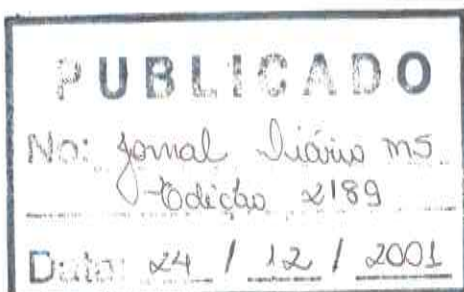 PUBLICADO
No: Jornal Diário MS
Edição 2189
Data: 24 / 12 / 2001